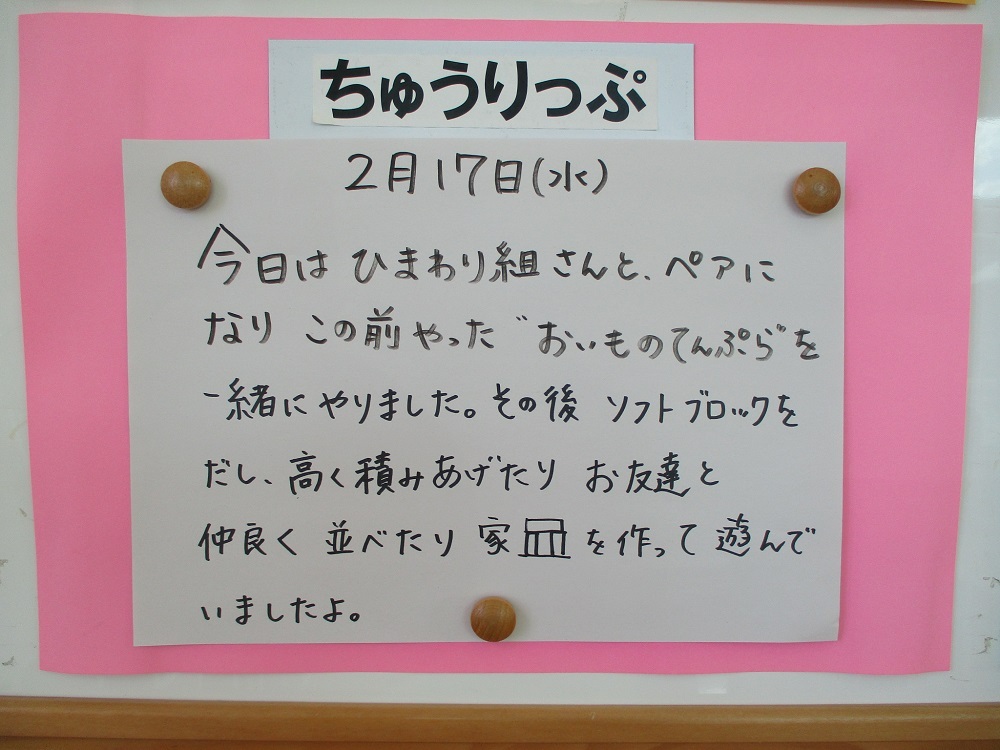 ちゅうりっぷ
2月17日(水)
今日は ひまわり組さんと、ペアに
なり この前やった〝おいものてんぷら〟を
一緒にやりました。その後 ソフトブロックを
だし、高く積みあげたり お友達と
仲良く 並べたり 家を作って遊んで
いましたよ。